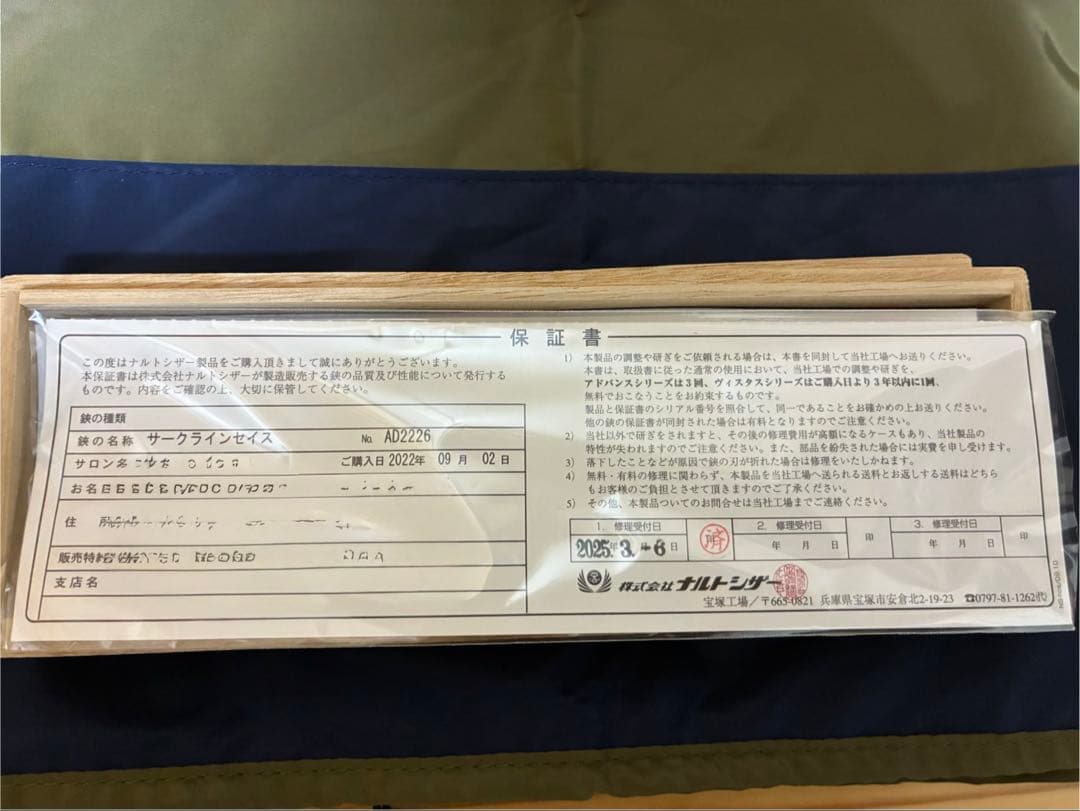 保証書
この度はナルトシザー製品をご購入頂きまして誠にありがとうございます。
本保証書は株式会社ナルトシザーが製造販売する鋏の品質及び性能について発行する
ものです。内容をご確認の上、大切に保管してください。
鋏の種類
鋏の名称 サークラインセイス No. AD2226
サロン名 ご購入日 2022年 09月 02日
お名
住
販売特
支店名
1) 本製品の調整や研ぎをご依頼される場合は、本書を同封して当社工場へお送りください。
本書は、取扱書に従った通常の使用において、当社工場での調整や研ぎを、
アドバンスシリーズは3回、ヴィスタスシリーズはご購入日より3年以内に1回、
無料でおこなうことをお約束するものです。
製品と保証書のシリアル番号を照合して、同一であることをお確かめの上お送りください。
他の鋏の保証書が同封された場合は有料となりますのでご注意ください。
2) 当社以外で研ぎをされますと、その後の修理費用が高額になるケースもあり、当社製品の
特性が失われますのでご注意ください。また、部品を紛失された場合には実費を申し受けます。
3) 落下したことなどが原因で鋏の刃が折れた場合は修理をいたしかねます。
4) 無料・有料の修理に関わらず、本製品を当社工場へ送られる送料とお返しする送料はどちら
もお客様のご負担とさせて頂きますのでご了承ください。
5) その他、本製品ついてのお問合せは当社工場までご連絡ください。
1. 修理受付日 2. 修理受付日 3. 修理受付日
2025年 3.月 6日 済 年 月 日 印 年 月 日 印
株式会社ナルトシザー
宝塚工場/〒665-0821 兵庫県宝塚市安倉北2-19-23 ☎0797-81-1262代